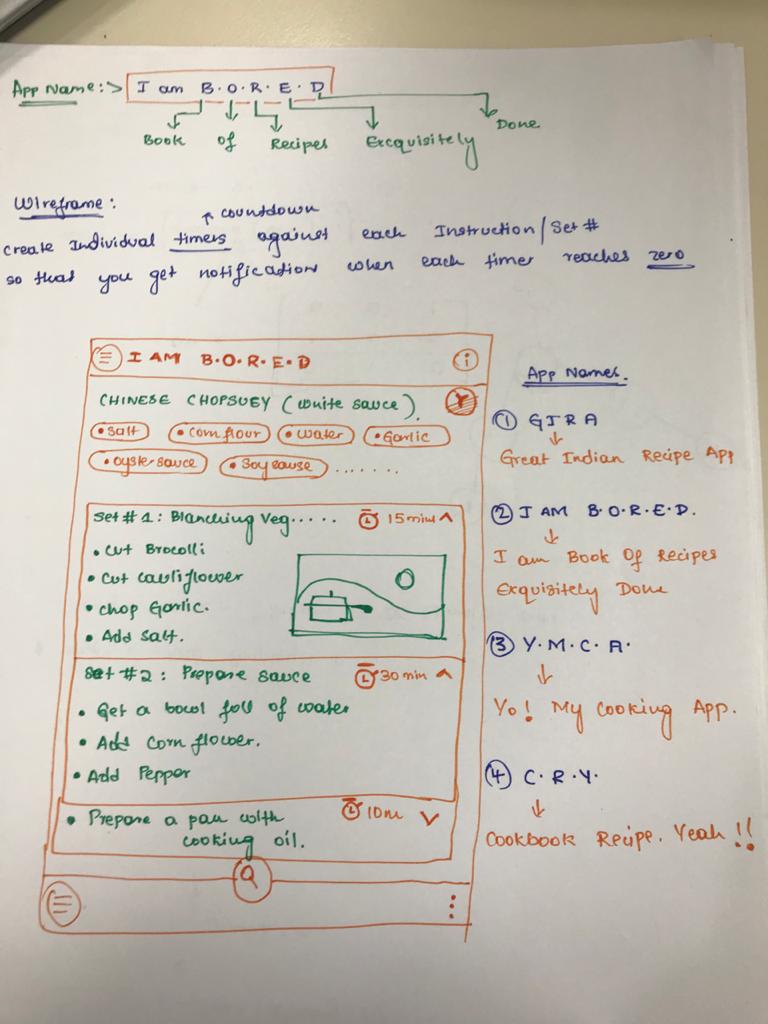 App Name:> I am B.O.R.E.D
Book of Recipes Excquisitely Done
Wireframe:
countdown
create Individual timers against each Instruction/Set #
so that you get notification when each timer reaches zero
I AM B.O.R.E.D i
CHINESE CHOPSUEY (white sauce). Y
• Salt • Corn flour • Water • Garlic
• oyster sauce • Soy sause .......
Set # 1: Blanching Veg..... 15 mins ^
• Cut Brocolli
• Cut cauliflower
• Chop Garlic.
• Add Salt.
Set #2: Prepare sauce 30 min ^
• Get a bowl full of water
• Add Corn flower.
• Add Pepper
• Prepare a pan with 10m v
cooking oil.
App Names.
1 GIRA
Great Indian Recipe App
2 I AM B.O.R.E.D.
I am Book Of Recipes
Exquisitely Done
3 Y.M.C.A.
Yo! My Cooking App.
4 C.R.Y.
Cookbook Recipe. Yeah!!